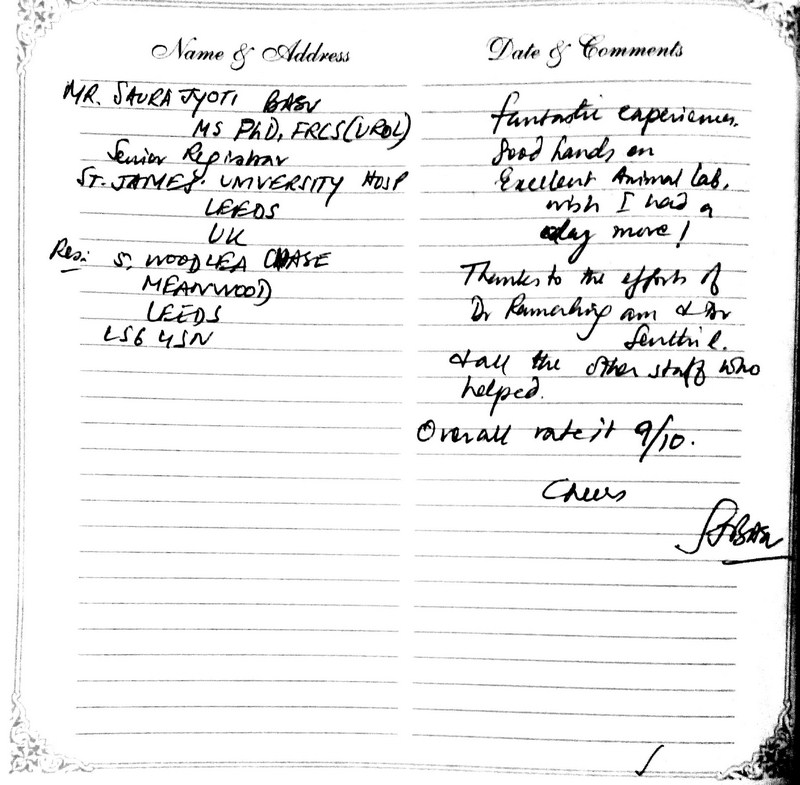 Name & Address
MR. SAURAJYOTI BASU
MS PhD, FRCS(UROL)
Senior Registrar
ST. JAMES' UNIVERSITY HOSP
LEEDS
UK
Resi: 5, WOODLEA CHASE
MEANWOOD
LEEDS
LS6 4SN
Date & Comments
Fantastic experience.
Good hands on
Excellent Animal Lab.
wish I had a
day more!
Thanks to the efforts of
Dr Ramalingam & Dr
Senthil.
& all the other staff who
helped.
Overall rate it 9/10.
Cheers
SJBasu